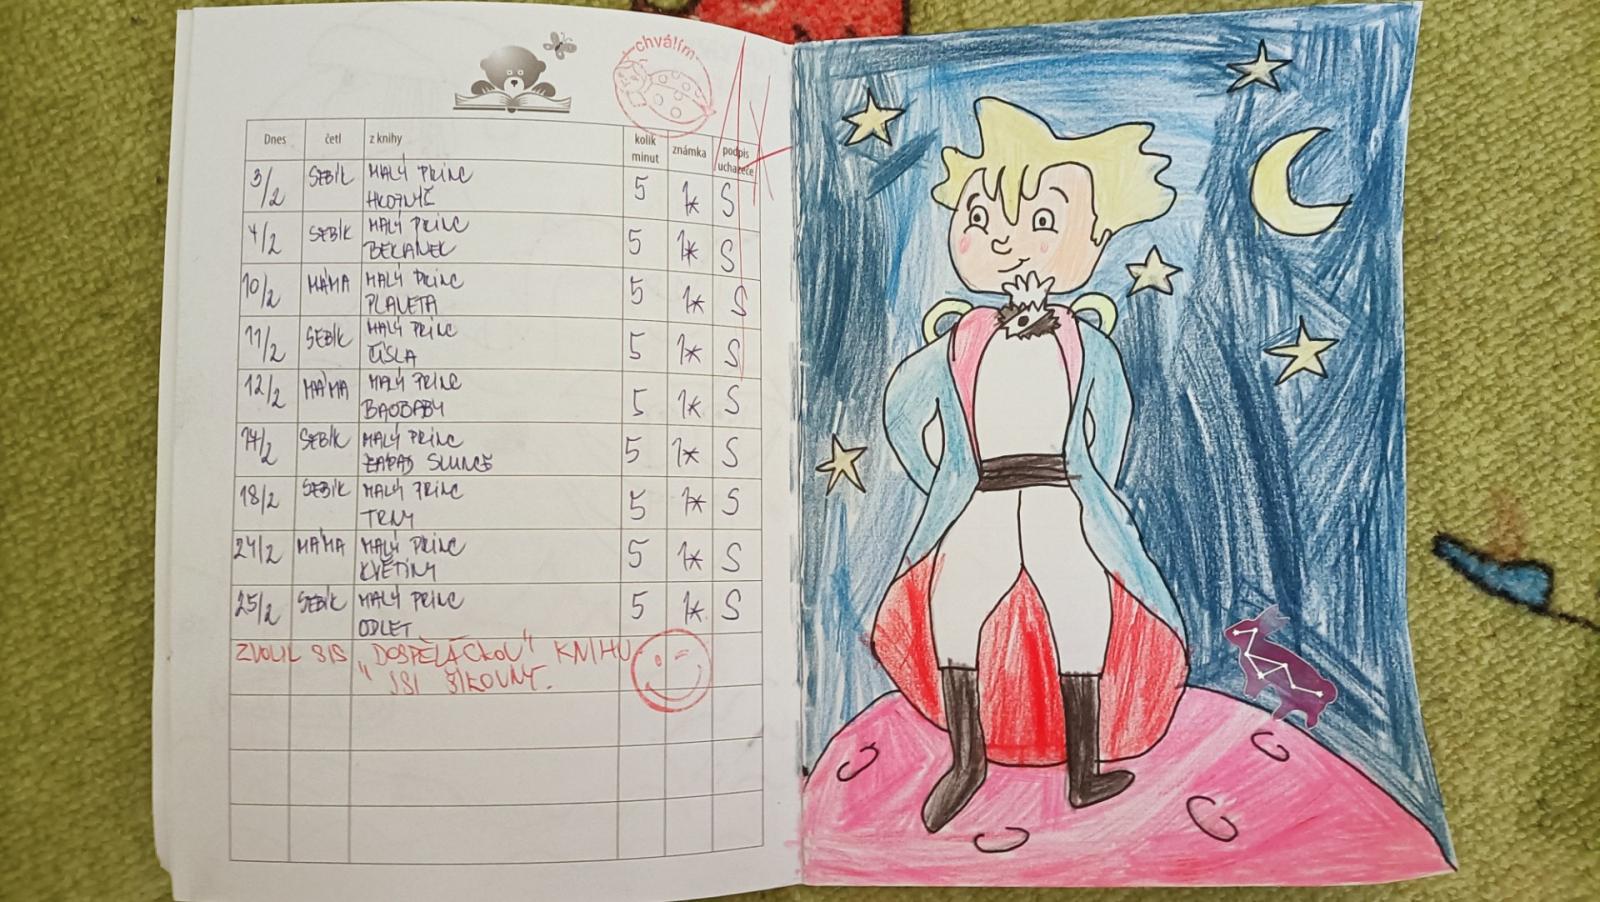 chválím
Dnes četl z knihy kolik minut známka podpis uchazeče
3/2 SEBÍK MALÝ PRINC 5 1* S
HROZNÝŠ
4/2 SEBÍK MALÝ PRINC 5 1* S
BERÁNEK
10/2 MÁMA MALÝ PRINC 5 1* S
PLANETA
11/2 SEBÍK MALÝ PRINC 5 1* S
ČÍSLA
12/2 MÁMA MALÝ PRINC 5 1* S
BAOBABY
14/2 SEBÍK MALÝ PRINC 5 1* S
ZÁPAD SLUNCE
18/2 SEBÍK MALÝ PRINC 5 1* S
TRNY
24/2 MÁMA MALÝ PRINC 5 1* S
KVĚTINY
25/2 SEBÍK MALÝ PRINC 5 1* S
ODLET
ZVOLIL SIS "DOSPĚLÁCKOU" KNIHU
JSI ŠIKOVNÝ.